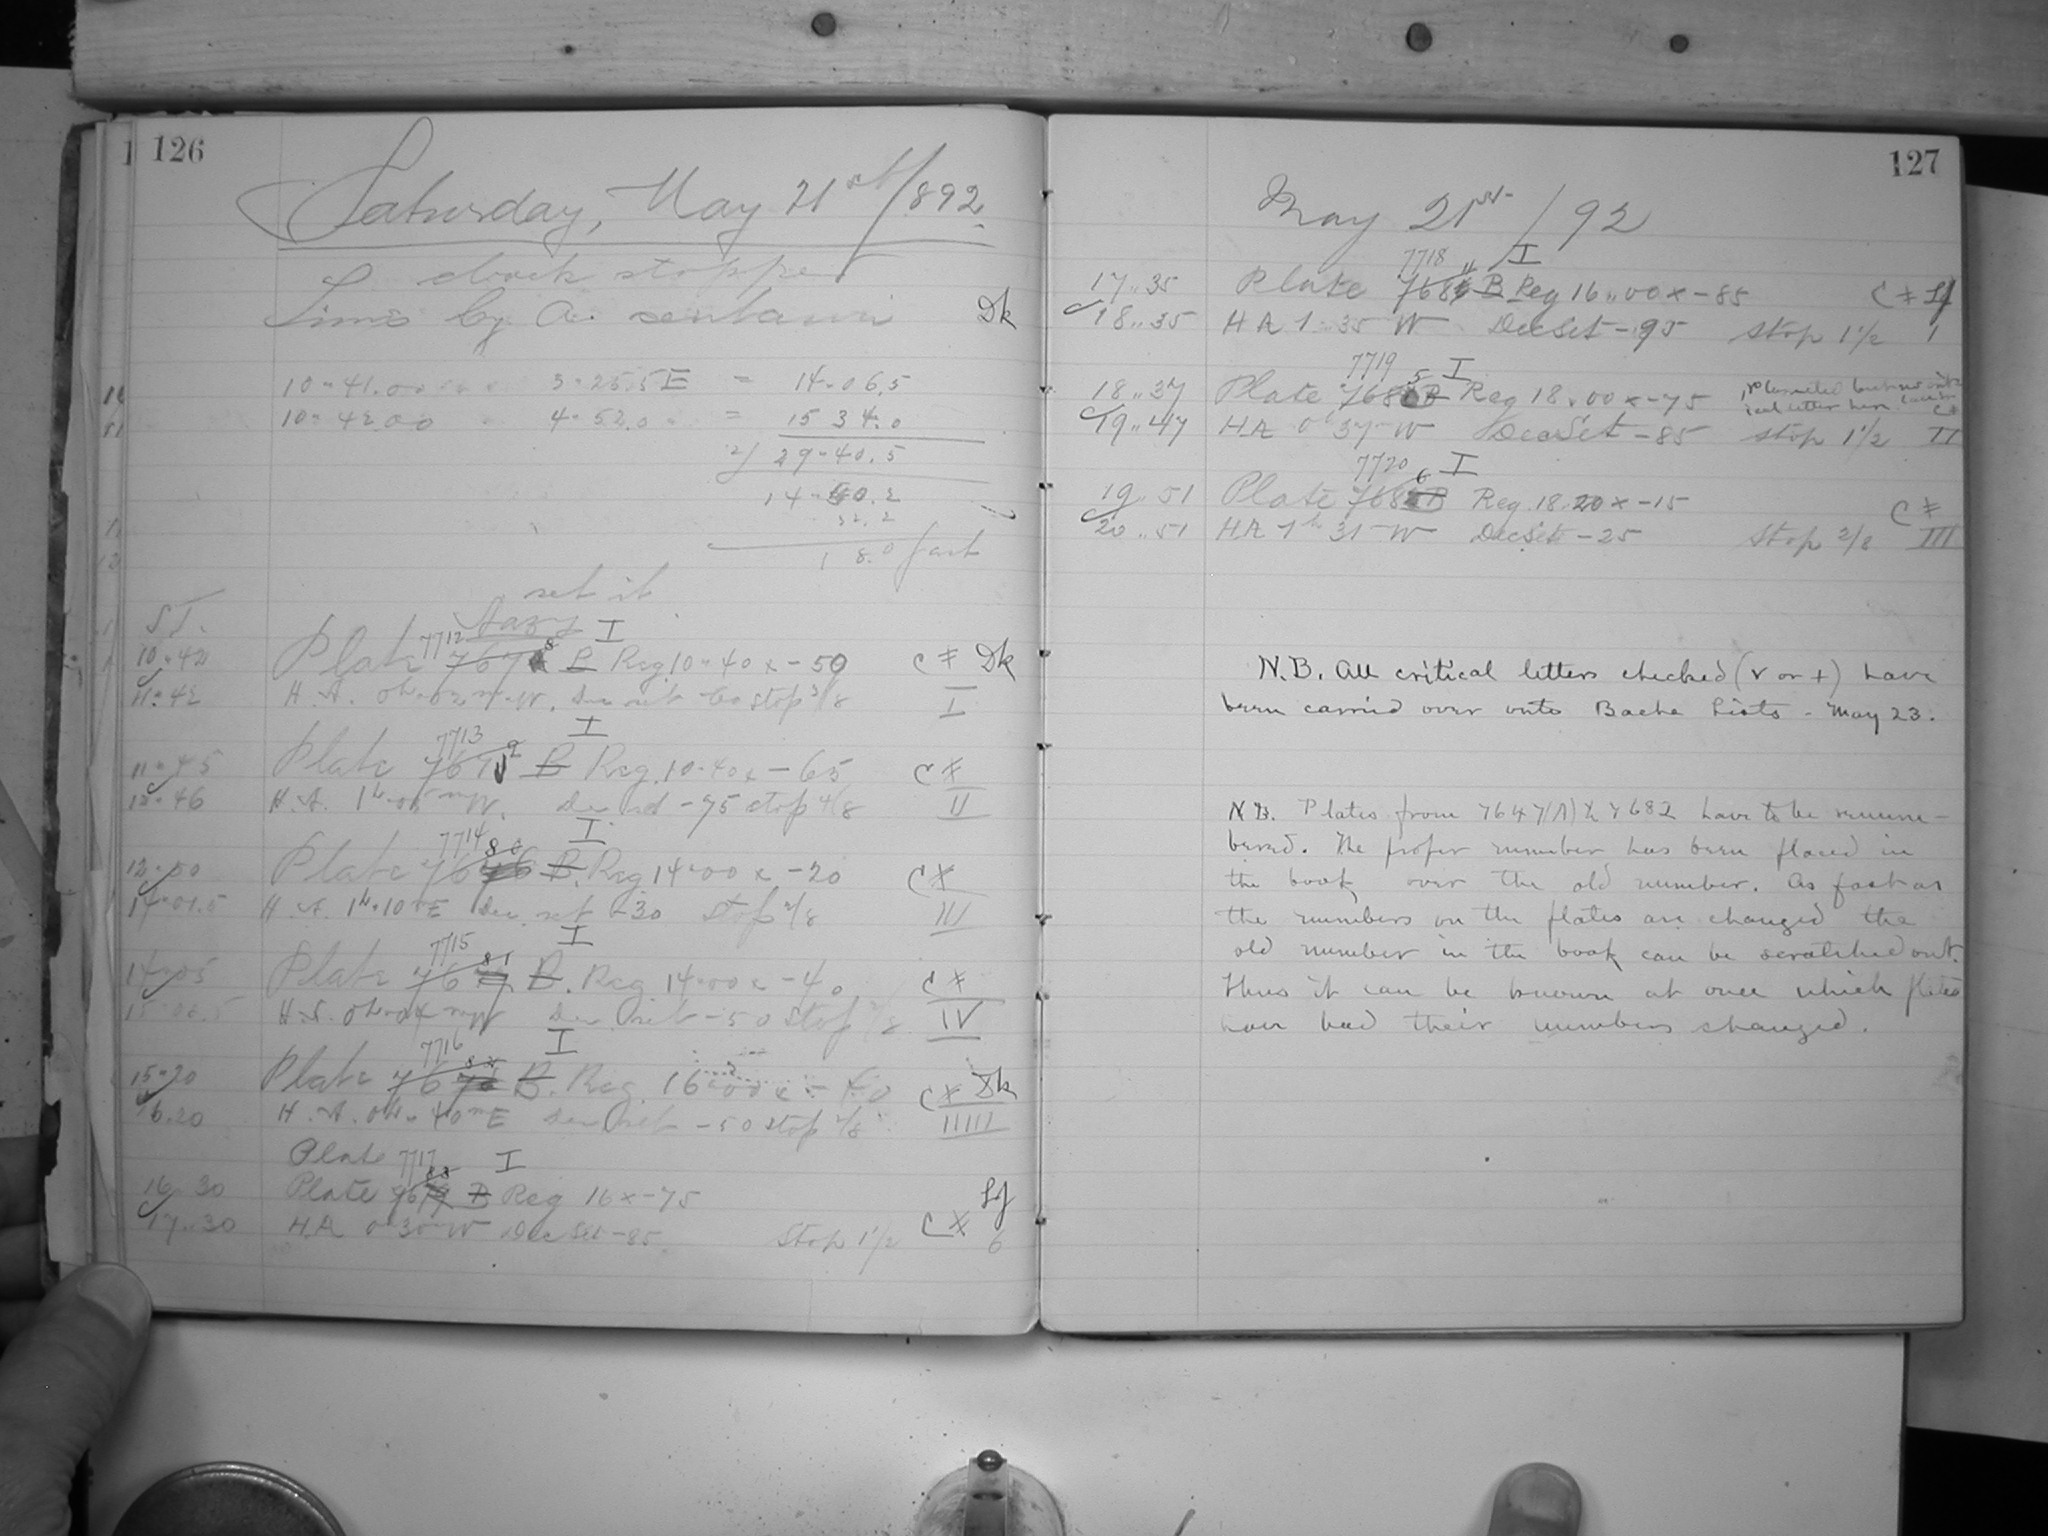 126
Saturday, May 21st/892.
clock stopped
Time by α centauri Dk
10 41.00 3 25.5 E = 14 06.5
10 42.00 4 52.0 = 15 34.0
2) 29 40.5
14 50.2
32.2
1 8.0 fast
set it
S.T. Hazy
7712 8 I
10 42 Plate 767 B Reg 10 40 x -50 C * Dk
11 42 H. A. 0h 02 m W. Dec set 60 stop 3/8 I
7713 9 I
11 45 Plate 767 B Reg. 10 40 x -65 C *
12 46 H. A. 1h 05 m W. Dec set -75 stop 4/8 II
7714 80 I
12 50 Plate 7676 B. Reg 14 00 x -20 C *
14 01.5 H. A. 1h 10 E Dec set -30 Stop 2/8 III
7715 81 I
14 05 Plate 767 B. Reg. 14 00 x -40 C *
15 06.5 H. A. 0h 04 m W Dec set -50 Stop /8 IV
7716 82 I
15 20 Plate 767 B. Reg. 16 00 x -40 C * Dk
16.20 H. A. 0h 40m E Dec set -50 stop 2/8 IIIII
Plate 7717 I
83
16 30 Plate 767 B Reg 16 x -75 Lf
17 30 HA 0 30 W Dec Set -85 Stop 1 1/2 C * 6
127
May 21st /92
7718 4 I
17 35 Plate 768 B Reg 16 00 x -85 C * Lf
18 35 HA 1 35 W Dec Set -95 stop 1 1/2 1
7719 5 I
18 37 Plate 768 B Reg 18 00 x -75
letter here C *
19 47 HA 0 37 W Dec Set -85 stop 1 1/2 II
7720 6 I
19 51 Plate 768 B Reg. 18 20 x -15 C *
20 51 HA 1h 31 W Dec Set -25 Stop 2/8 III
N.B. All critical letters checked (v or +) have
been carried over onto Bache Lists - May 23.
N.B. Plates from 7647(A) to 7682 have to be renum-
bered. The proper number has been placed in
the book over the old number. As fast as
the numbers on the plates are changed the
old number in the book can be scratched out.
Thus it can be known at once which plates
have had their numbers changed.